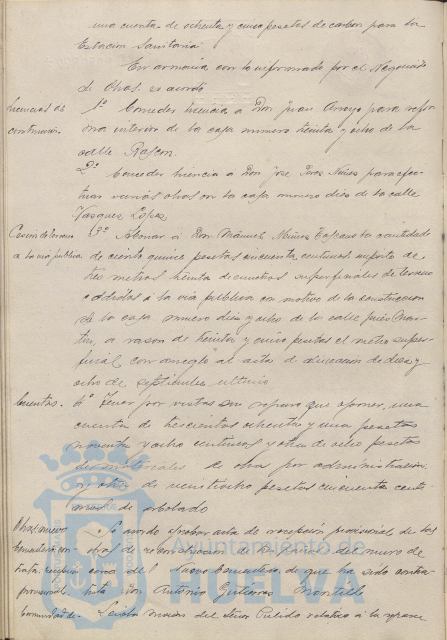 una cuenta de ochenta y cinco pesetas de carbon para la
Estacion Sanitaria
En armonia con lo informado por el Negociado
de Obras, se acordó
Licencias de construccion. 1º Conceder licencia a Don Juan Arroyo para reforma
interior de la casa numero treinta y ocho de la
calle Rascon.
2º Conceder licencia a Don José Peres Nuñez para efectuar
varias obras en la casa numero dies de la calle
Vasquez Lopez
Cesion de terreno a la via publica 3º Abonar a Don Manuel Nuñez la cantidad
de ciento quince pesetas cincuenta centimos importe de
tres metros treinta decimetros superficiales de terreno
cedidos a la via publica con motivo de la construccion
de la casa numero dies y ocho de la calle
a razon de treinta y cinco pesetas el metro superficial
con arreglo al acta de alineacion de dies y
ocho de septiembre ultimo
Cuentas. 4º Tener por vistas sin reparo que oponer, una
cuenta de trescientas ochenta y una pesetas
noventa y ocho centimos y otra de ocho pesetas
de materiales de obra por administracion
y otra de veintiocho pesetas cincuenta centimos
de arbolado
Obras nuevo Cementerio Se acordó aprobar acta de recepcion provisional de las
obras de construccion de del muro de
del Nuevo Cementerio de que ha sido contratista
Don Antonio Gutierrez Montillo
Leida mocion del Señor Pulido relativa a la
Ayuntamiento de
HUELVA